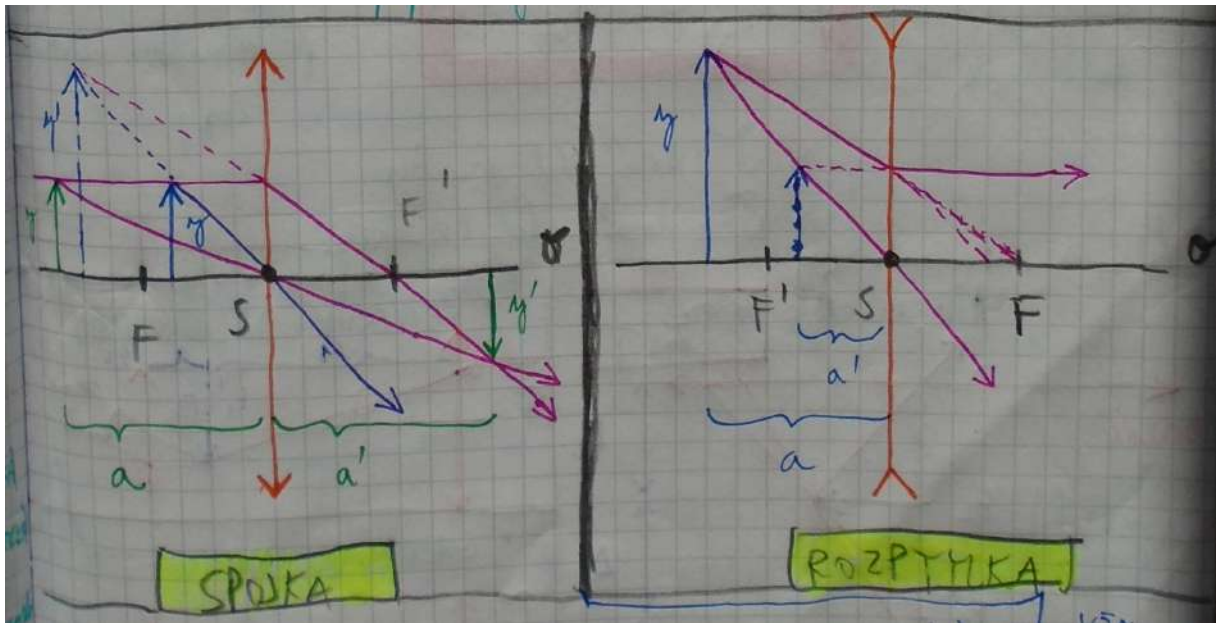 y'
F'
o
y
y
S
y'
F
a
a'
SPOJKA
y
o
F'
S
F
a'
a
ROZPTYLKA